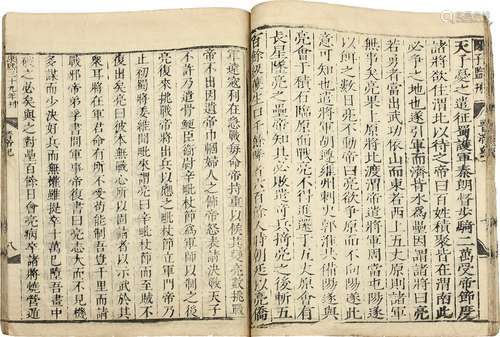 天子憂之遣征蜀護軍秦朗督步騎二萬受帝節度
諸將欲住渭北以待之帝曰百姓積聚皆在渭南此
必爭之地也遂引軍而濟背水爲壘因謂諸將曰亮
若勇者當出武功依山而東若西上五丈原則諸軍
無事矣亮果上原將北渡渭帝遣將軍周當屯陽遂
以餌之數日亮不動帝曰亮欲爭原而不向陽遂此
意可知也遣將軍胡遵雍州剌史郭淮共備陽遂與
亮會于積石臨原而戰亮不得進還于五丈原會有
長星墜亮之壘帝知其必敗遣奇兵掎亮之後斬五
百餘級獲生口千餘降者六百餘人時朝廷以亮僑
軍遠寇利在急戰每命帝持重以候其變亮數挑戰
帝不出因遺帝巾幗婦人之飾帝怒表請決戰天子
不許乃遣骨鯁臣衞尉辛毗杖節爲軍師以制之後
亮復來挑戰帝將出兵以應之毗杖節立軍門帝乃
止初蜀將姜維聞毗來謂亮曰辛毗杖節而至賊不
復出矣亮曰彼本無戰心所以固請者以示武於其
衆耳將在軍君命有所不受苟能制吾豈千里而請
戰邪帝弟孚書問軍事帝復書曰亮志大而不見機
多謀而少決好兵而無權雖提卒十萬已墮吾畫中
破之必矣與之對壘百餘日會亮病卒諸將燒營遁
八